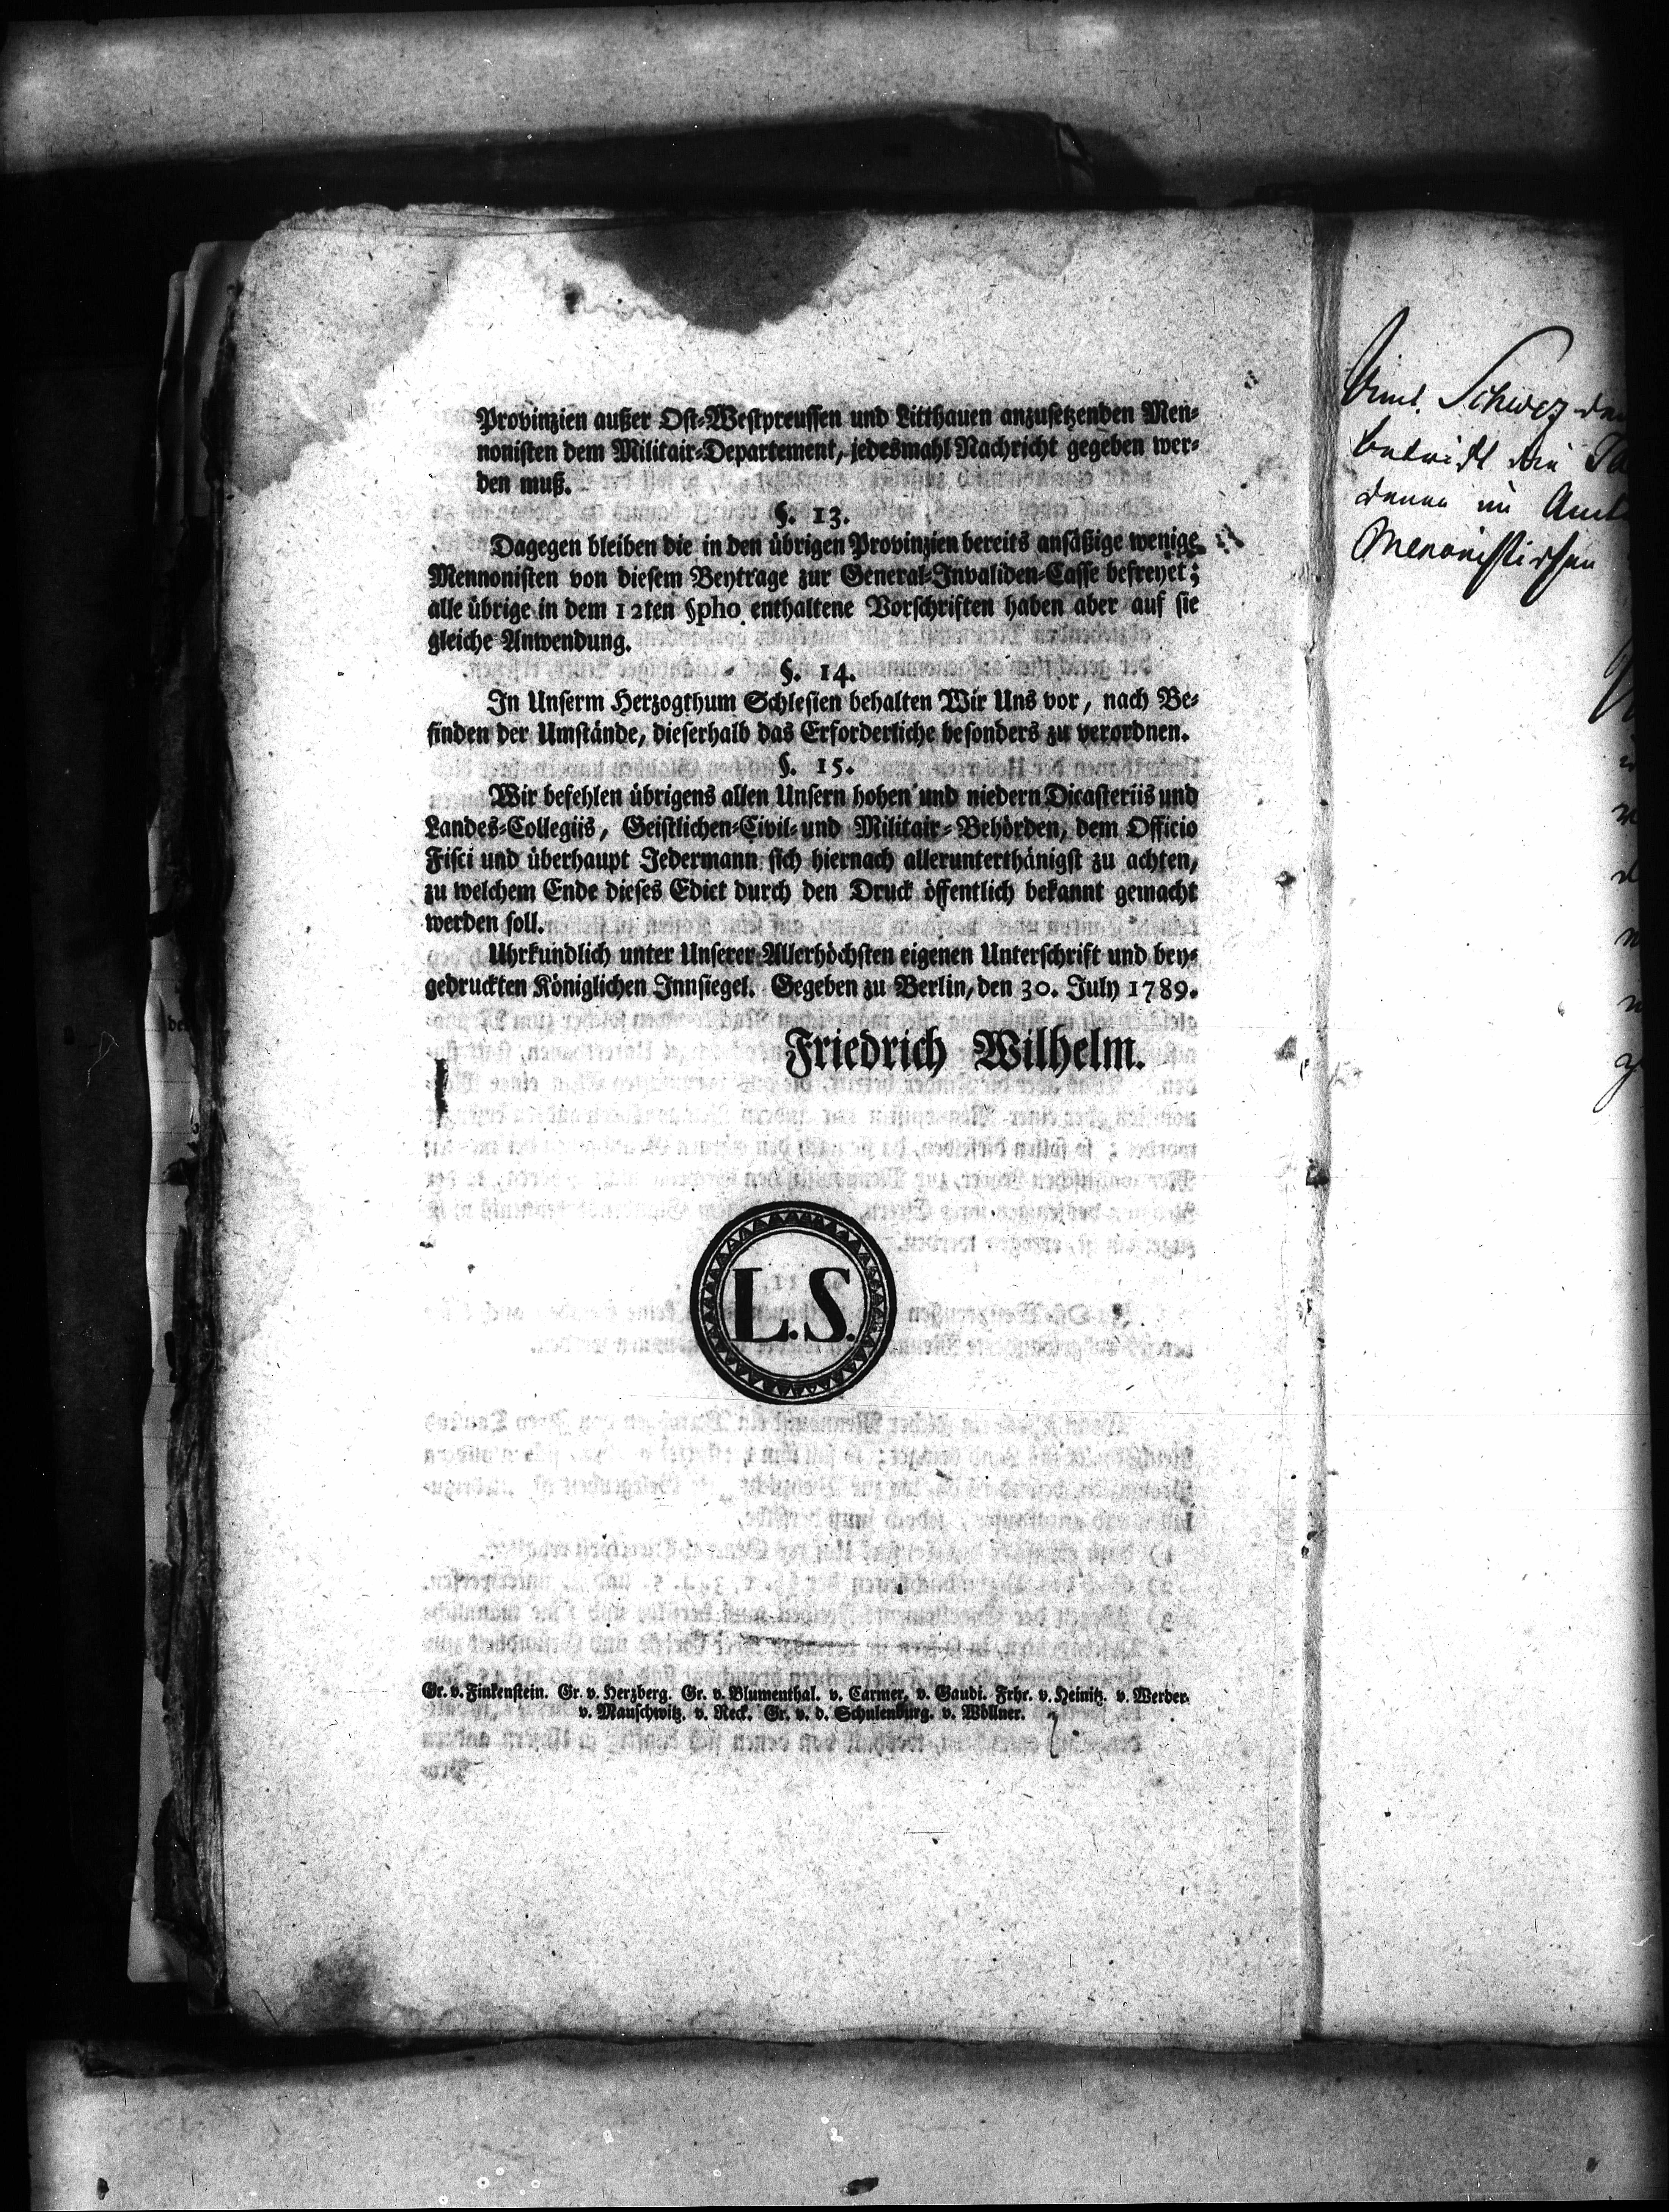 Provinzien außer Ost-Westpreussen und Litthauen anzusetzenden Men-
nonisten dem Militair-Departement, jedesmahl Nachricht gegeben wer-
den muß.
§. 13.
Dagegen bleiben die in den übrigen Provinzien bereits ansäßige wenige
Mennonisten von diesem Beytrage zur General-Invaliden-Casse befreyet;
alle übrige in dem 12ten §pho enthaltene Vorschriften haben aber auf sie
gleiche Anwendung.
§. 14.
In Unserm Herzogthum Schlesien behalten Wir Uns vor, nach Be-
finden der Umstände, dieserhalb das Erforderliche besonders zu verordnen.
§. 15.
Wir befehlen übrigens allen Unsern hohen und niedern Dicasteriis und
Landes-Collegiis, Geistlichen-Civil- und Militair-Behörden, dem Officio
Fisci und überhaupt Jedermann sich hiernach allerunterthänigst zu achten,
zu welchem Ende dieses Edict durch den Druck öffentlich bekannt gemacht
werden soll.
Uhrkundlich unter Unserer Allerhöchsten eigenen Unterschrift und bey-
gedruckten Königlichen Innsiegel. Gegeben zu Berlin, den 30. July 1789.
Friedrich Wilhelm.
L.S.
Gr. v. Finkenstein. Gr. v. Herzberg. Gr. v. Blumenthal. v. Carmer. v. Gaudi. Frhr. v. Heinitz. v. Werder.
v. Mauschwitz. v. Reck. Gr. v. d. Schulenburg. v. Wöllner.
Schwez
betrifft die
denen im Amte
Menonistischen